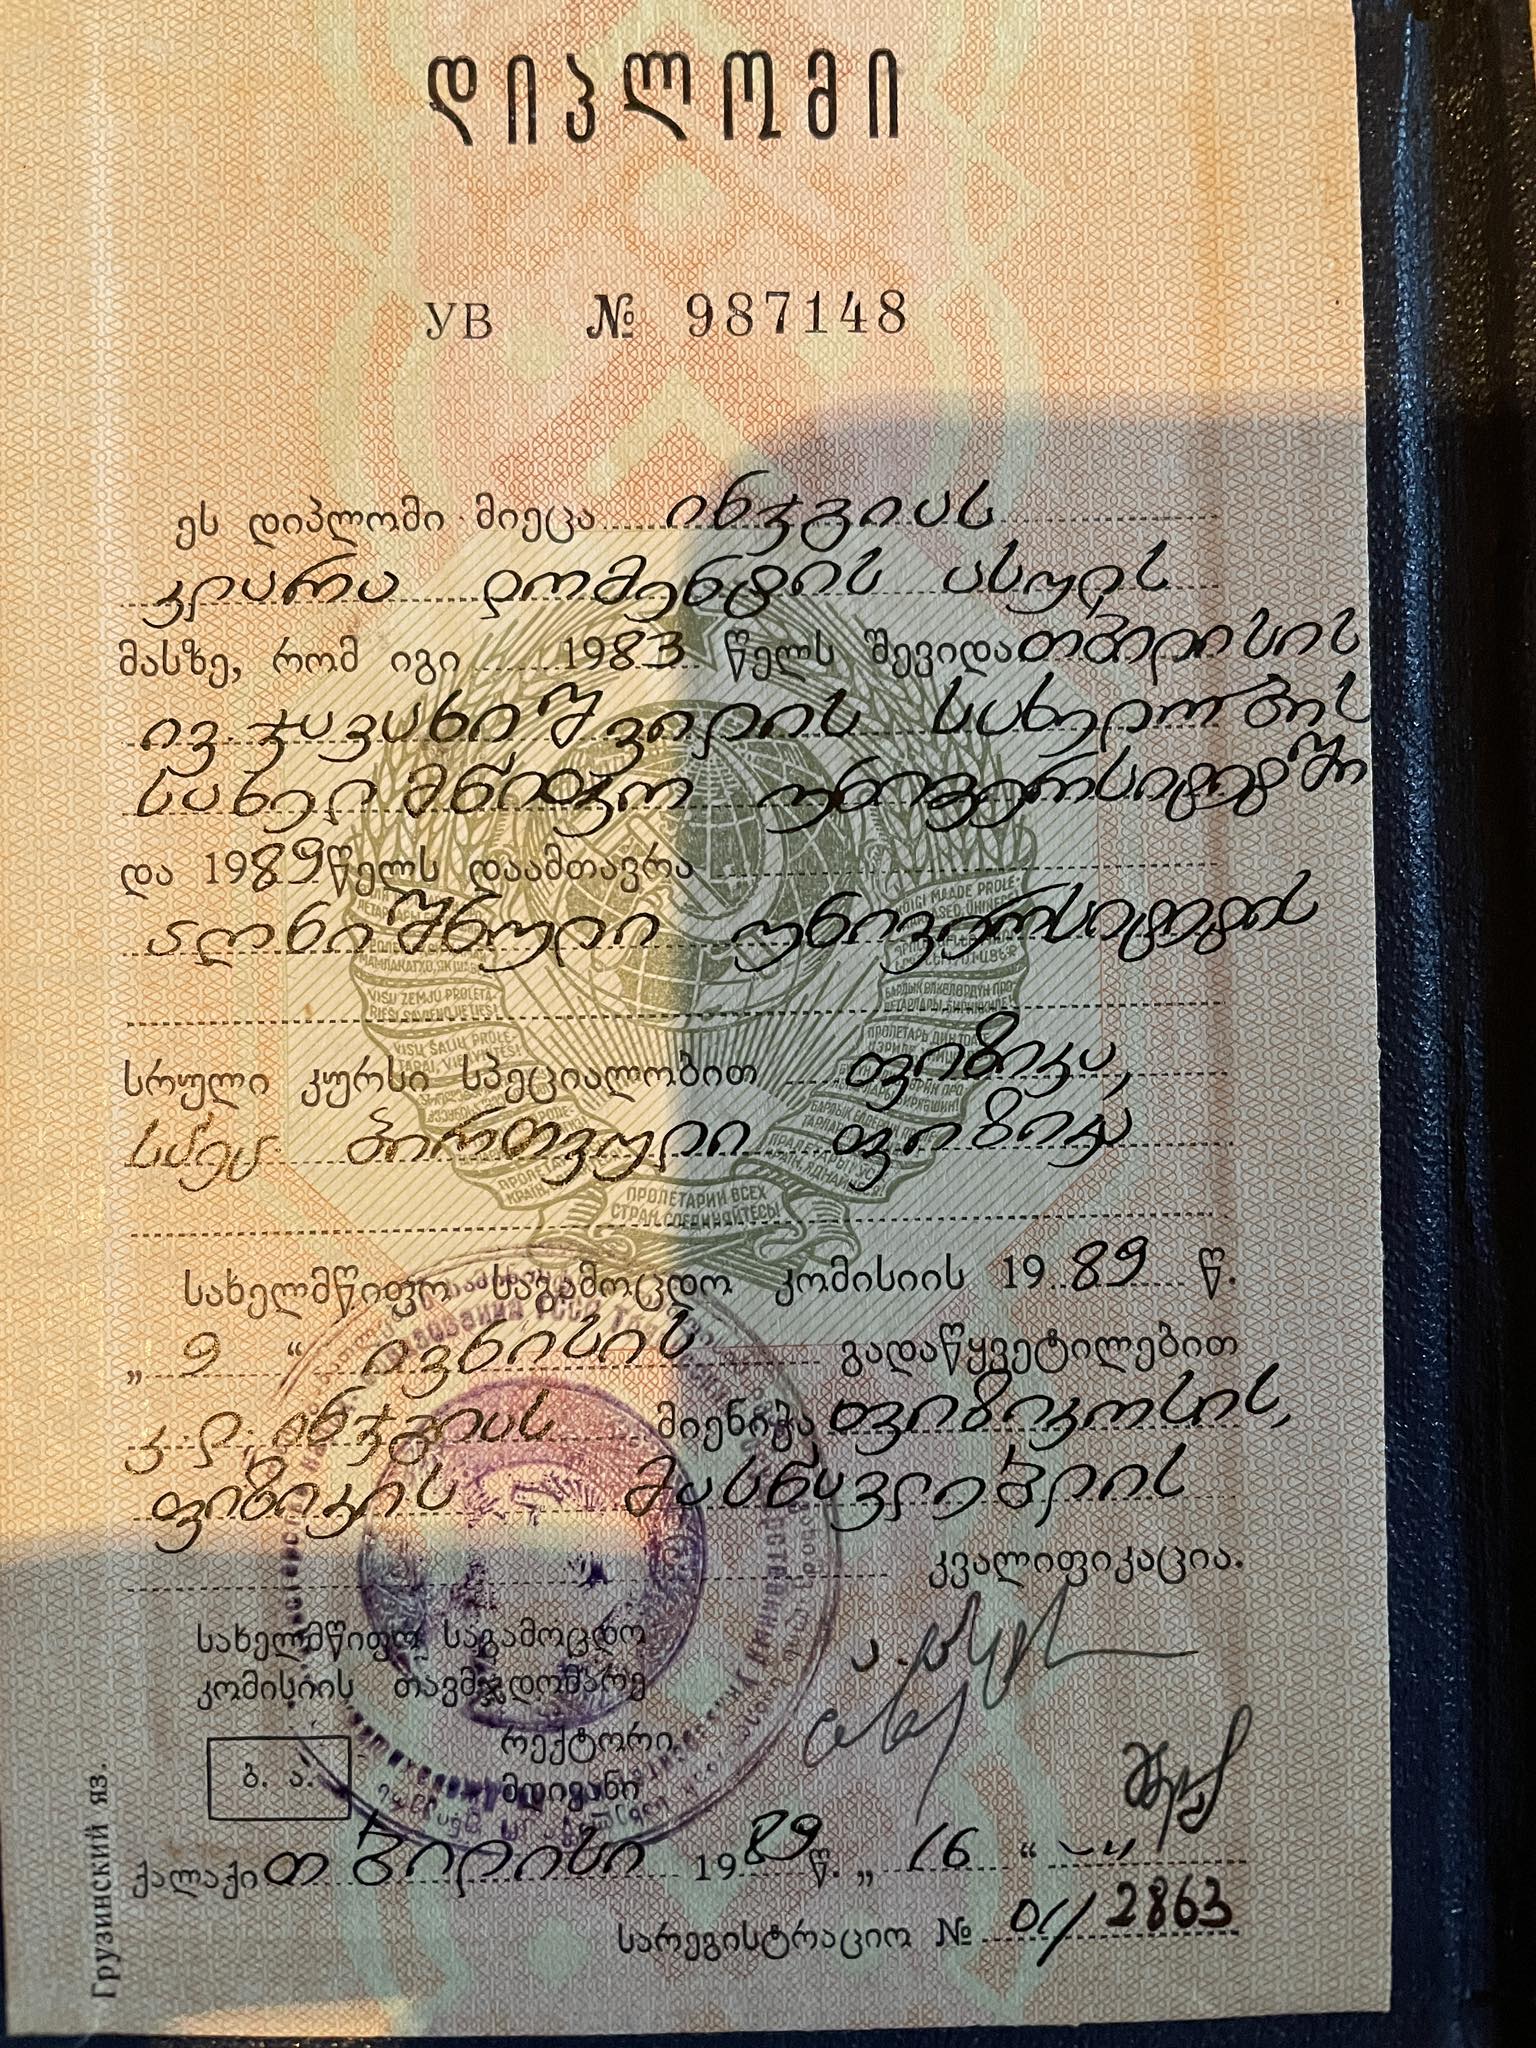 დიპლომი
УВ № 987148
ეს დიპლომი მიეცა ინჯგიას
კლარა დომენტის ასულს
მასზე, რომ იგი 1983 წელს შევიდა თბილისის
ივ. ჯავახიშვილის სახელობის
სახელმწიფო უნივერსიტეტში
და 1989 წელს დაამთავრა
აღნიშნული უნივერსიტეტის
სრული კურსი სპეციალობით ფიზიკა,
სპეც. ბირთვული ფიზიკა
სახელმწიფო საგამოცდო კომისიის 1989 წ.
„ 9 “ ივნისის გადაწყვეტილებით
კ. დ. ინჯგიას მიენიჭა ფიზიკოსის,
ფიზიკის მასწავლებლის
კვალიფიკაცია.
სახელმწიფო საგამოცდო
კომისიის თავმჯდომარე
რექტორი
მდივანი
ბ. ა.
ქალაქი თბილისი 1989 წ. „ 16 “
სარეგისტრაციო № 01/2863
Грузинский яз.
ПРОЛЕТАРИИ ВСЕХ
СТРАН, СОЕДИНЯЙТЕСЬ!